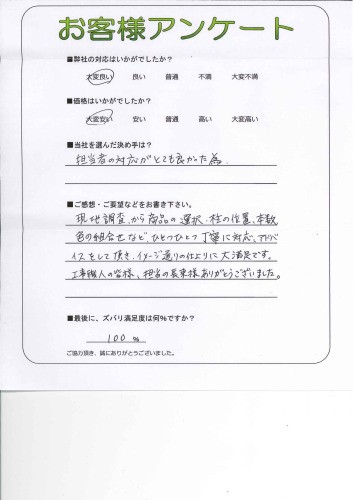 お客様アンケート
■弊社の対応はいかがでしたか?
大変良い 良い 普通 不満 大変不満
■価格はいかがでしたか?
大変安い 安い 普通 高い 大変高い
■当社を選んだ決め手は?
担当者の対応がとても良かった為
■ご感想・ご要望などをお書き下さい。
現地調査から商品の選択、柱の位置、本数、
色の組合せなど、ひとつひとつ丁寧に対応、アドバ
イスをして頂き、イメージ通りの仕上りに大満足です。
工事職人の皆様、担当の長東様ありがとうございました。
■最後に、ズバリ満足度は何%ですか?
100 %
ご協力頂き、誠にありがとうございました。